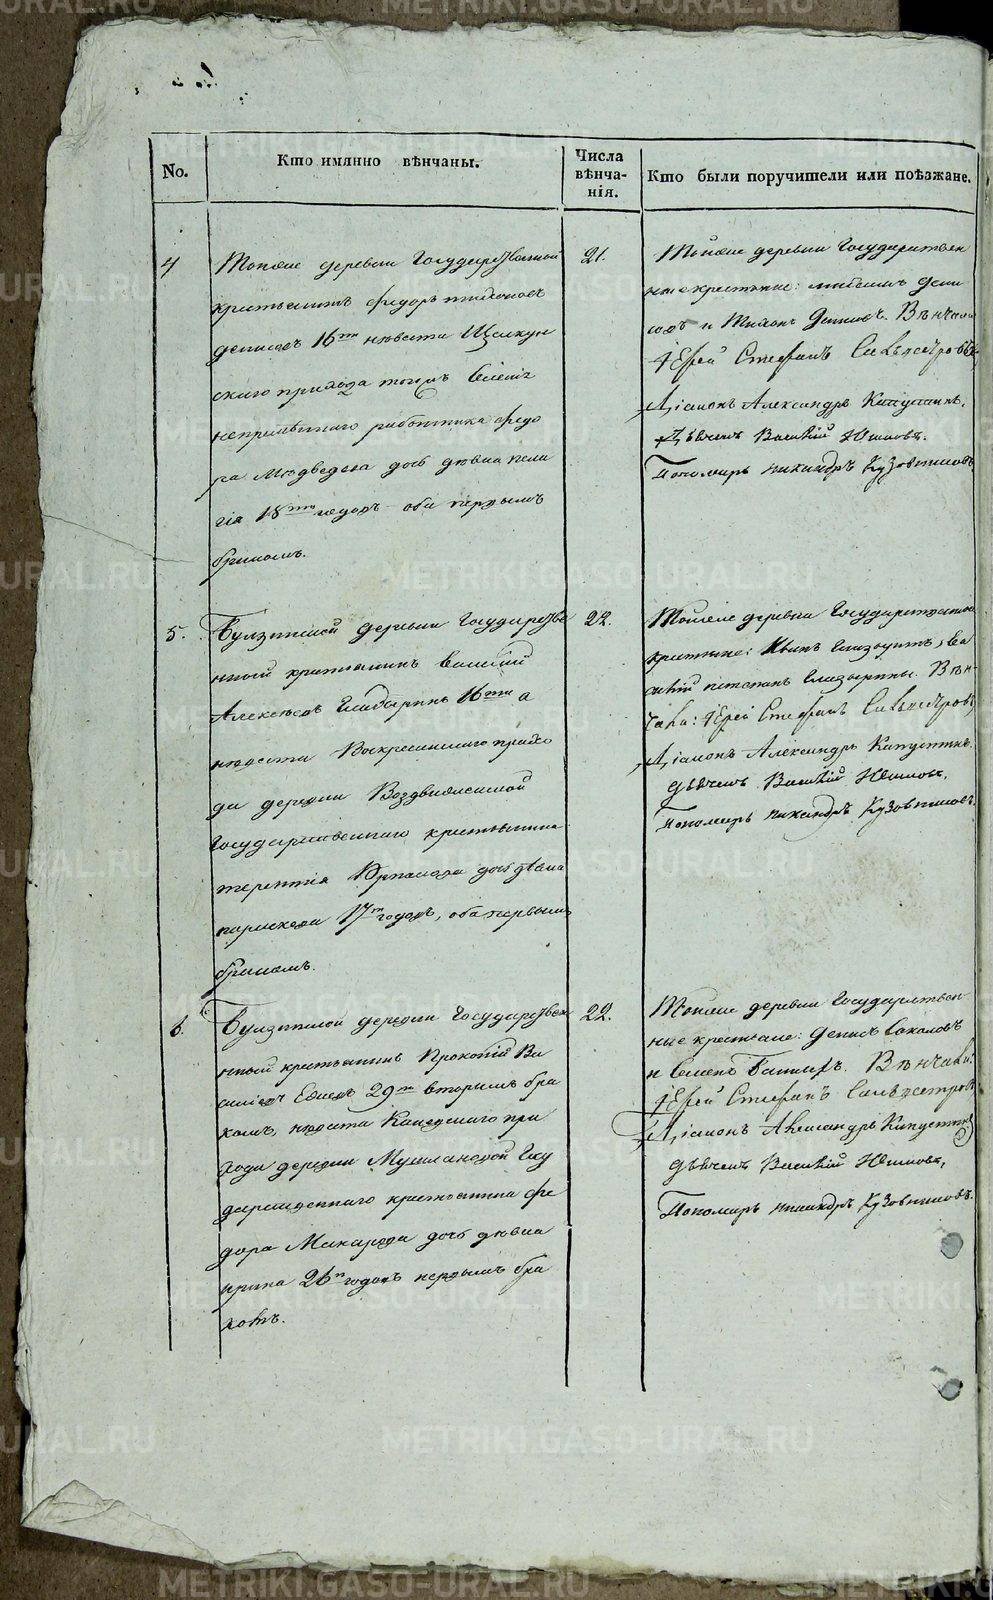 No.
Кто имянно вѣнчаны.
Числа
вѣнча-
нія.
Кто были поручители или поѣзжане.
4
Тойже деревни Государственной
крестьянинъ Федоръ
16ти невѣста Щелкун
скаго прихода
непремѣннаго работника Федо
ра Медведева дочь дѣвка Пела
гія 18ти годовъ оба первымъ
бракомъ.
21.
Тойже деревни Государствен
ные крестьяне:
и Тихонъ Вѣнчали
Іерей Стефанъ Сильвестровъ
Діаконъ Александръ Капустинъ.
Дьячекъ Василій Юшковъ.
Пономарь Никандръ Кузовниковъ.
5.
Булзинской деревни Государстве
нный крестьянинъ Василій
Алексѣевъ Глазыринъ 16ти а
невѣста Воскресенскаго прихо
да деревни Воздвиженской
Государственнаго крестьянина
Терентія дочь дѣвка
Парасковя 17ти годовъ, оба первымъ
бракомъ.
22.
Тойже деревни Государственные
крестьяне: Иванъ Глазыринъ, Ва
силій Глазырины. Вѣн-
чали: Іерей Стефанъ Сильвестровъ
Діаконъ Александръ Капустинъ.
Дьячекъ Василій Юшковъ.
Пономарь Никандръ Кузовниковъ.
6.
Булзинской деревни Государствен
нный крестьянинъ Прокопій Ва
сильевъ 29ти вторымъ бра
комъ, невѣста при
хода деревни Госу
дарственнаго крестьянина Фе
дора Макарова дочь дѣвка
Ирина 26ти годовъ первымъ бра
комъ.
22.
Тойже деревни Государствен
ные крестьяне: Денисъ Соколовъ
и Семенъ Вѣнчали:
Іерей Стефанъ Сильвестровъ
Діаконъ Александръ Капустинъ
Дьячекъ Василій Юшковъ,
Пономарь Никандръ Кузовниковъ.
METRIKI.GASO-URAL.RU